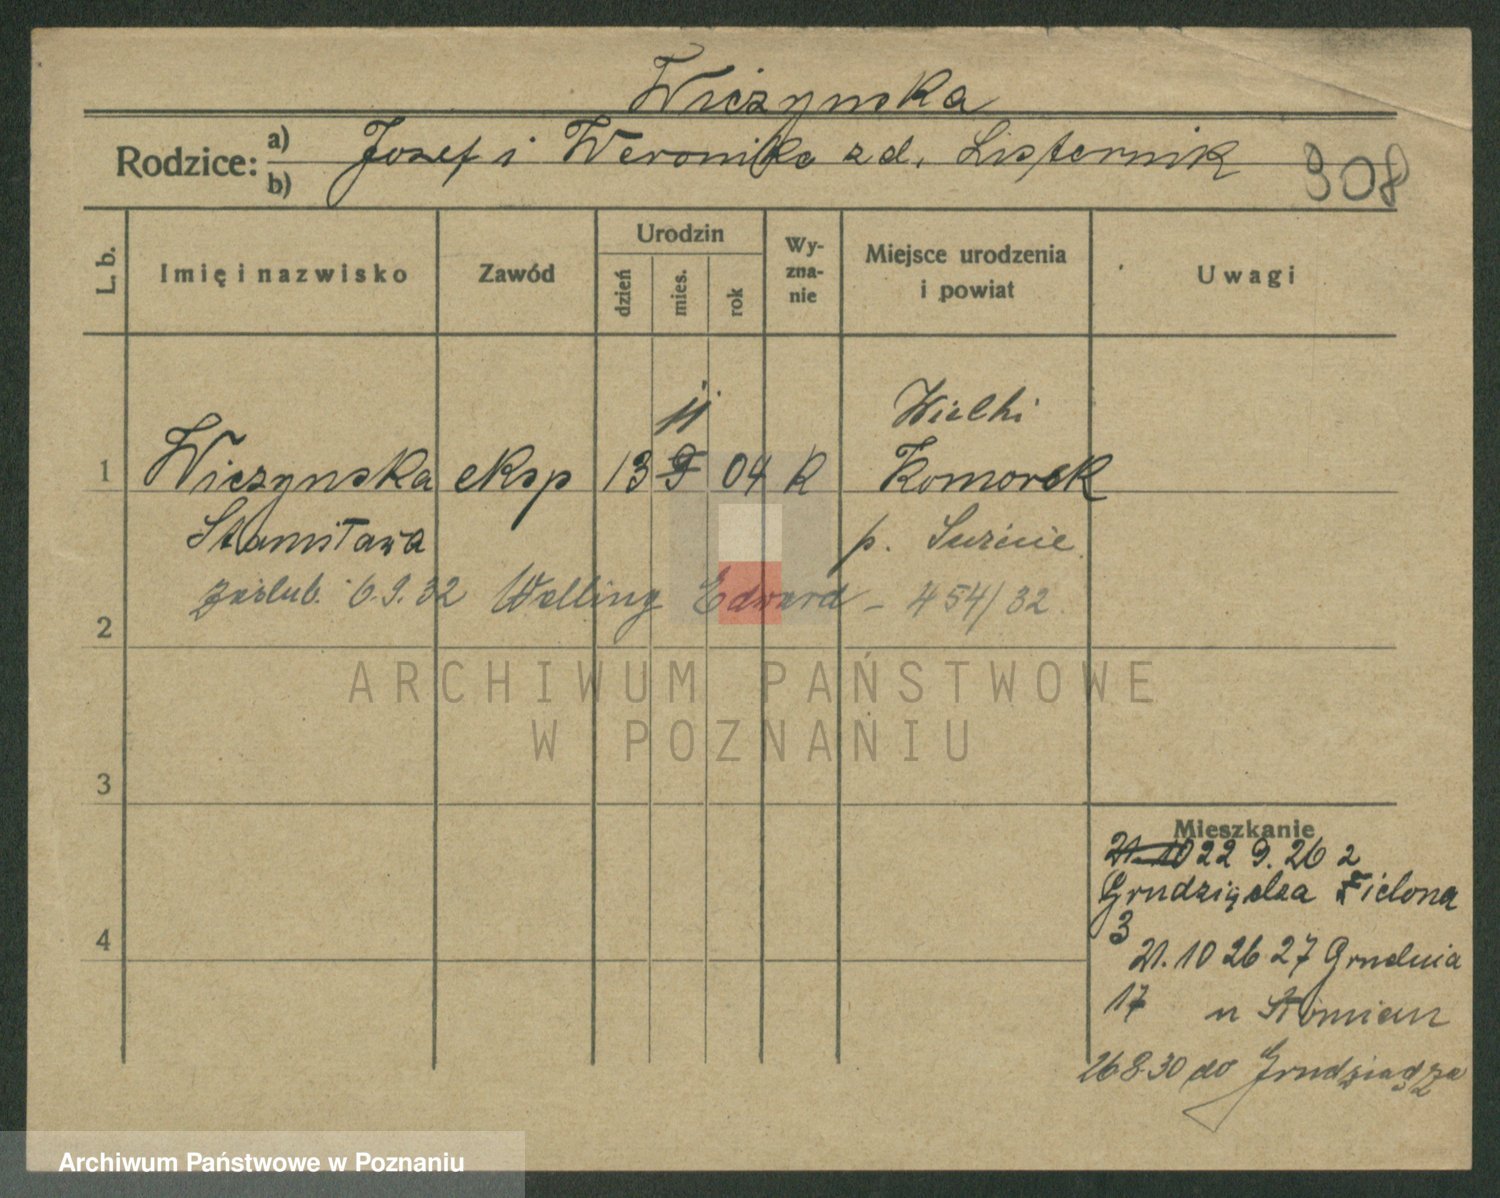 Wiczynska
Rodzice: a) Josef i Weronika z d. Listernik
b)
308
L. b.
Imię i nazwisko
Zawód
Urodzin
dzień
mies.
rok
Wy-
zna-
nie
Miejsce urodzenia
i powiat
Uwagi
11
Wielki
1 Wiczynska eksp 13 9 04 k Komorsk
Stanisława p. Świecie
zaślub. 6.9.32 Welling Edward - 454/32
2
ARCHIWUM PAŃSTWOWE
W POZNANIU
3
Mieszkanie
21.10 22 9. 26 z
Grudziądza Zielona
3
4
21. 10 26 27 Grudnia
17 u
26 8.30 do Grudziądza
Archiwum Państwowe w Poznaniu